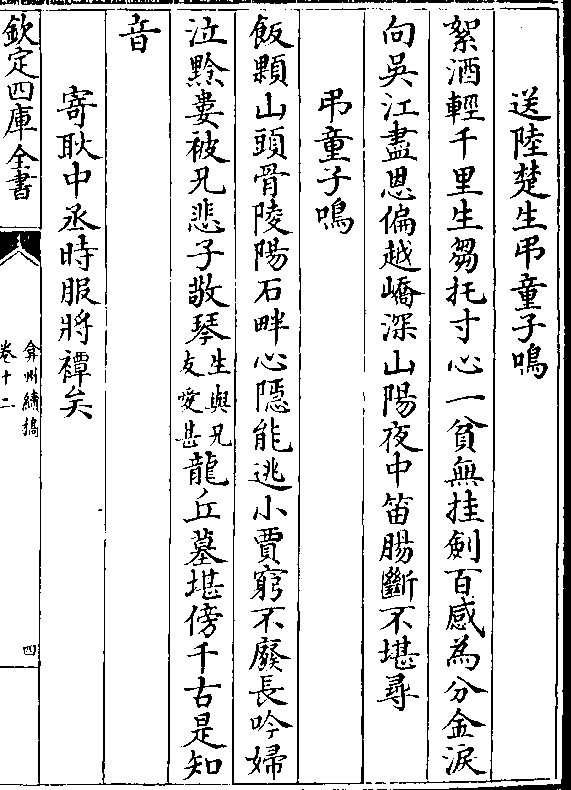 送陸楚生弔童子鳴
絮酒輕千里生芻托寸心一貧無挂劍百感為分金淚
向吳江盡思偏越嶠深山陽夜中笛腸斷不堪尋
弔童子鳴
飯顆山頭骨陵陽石畔心隱能逃小賈窮不廢長吟婦
泣黔婁被兄悲子敬琴生與兄友愛甚龍丘墓堪傍千古是知
音
寄耿中丞時服將禫矣
欽定四庫全書
弇州續稿
卷十二
四